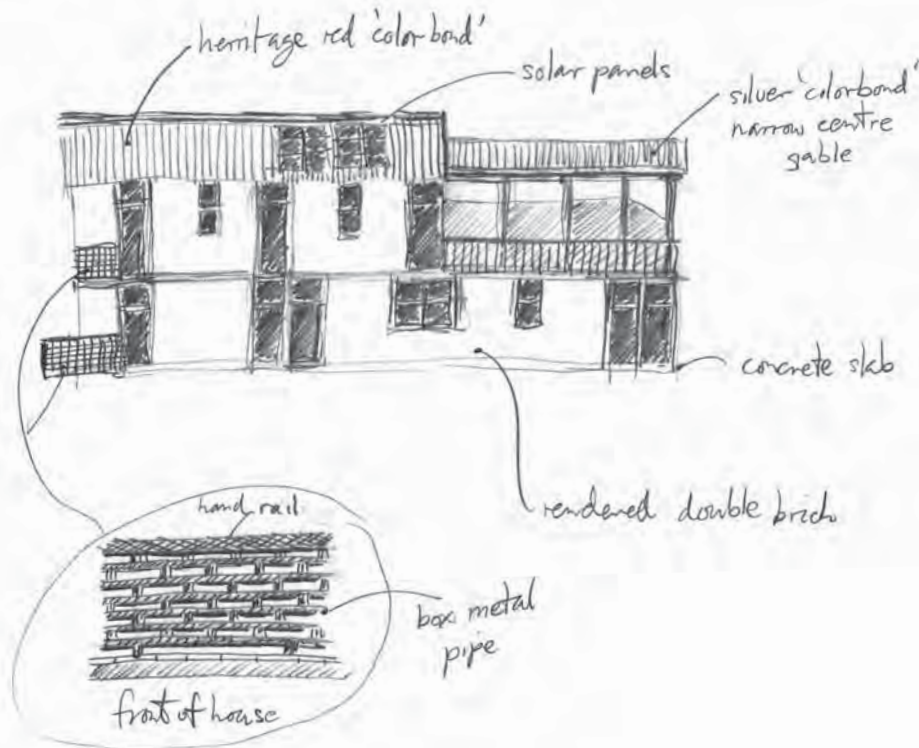 heritage red 'colorbond'
solar panels
silver 'colorbond'
narrow centre
gable
concrete slab
rendered double brick
hand rail
box metal
pipe
front of house